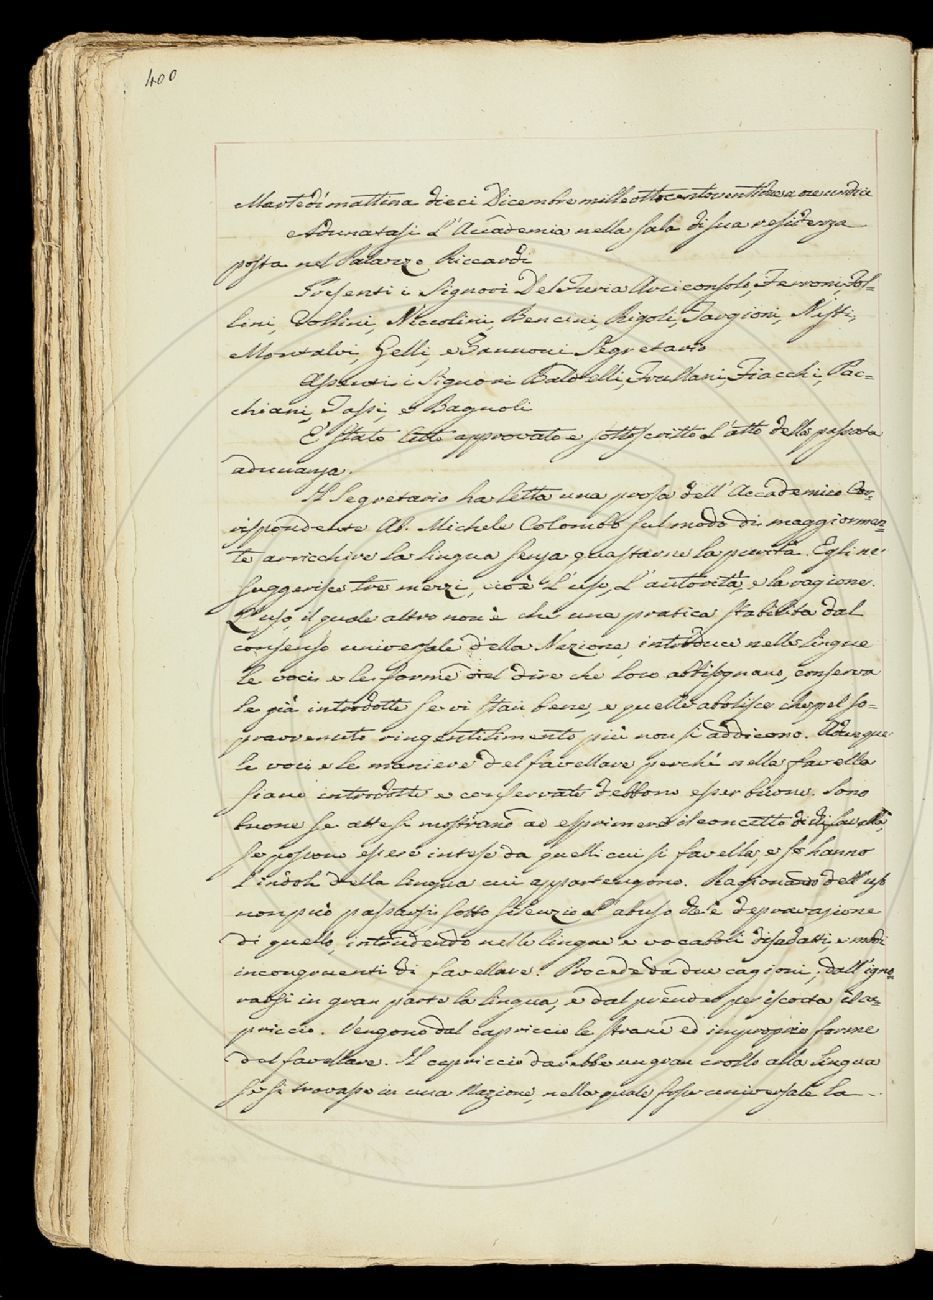 400
Martedì mattina dieci Dicembre milleottocentoventidue a ore undici
Adunatasi l'Accademia nella sala di sua residenza
posta nel Palazzo Riccardi
Presenti i Signori Del Furia Arciconsolo, Ferroni, Pol=
lini, Collini, Niccolini, Bencini, Rigoli, Targioni, Nesti,
Montalvi, Gelli, e Zannoni Segretario
Assenti i Signori Baldelli, Frullani, Fiacchi, Pac=
chiani, Tassi, e Bagnoli
È stato letto approvato e sottoscritto l'atto della passata
adunanza.
Il Segretario ha letta una prosa dell'Accademico Cor=
rispondente Ab. Michele Colombo sul modo di maggiormen=
te arricchire la lingua senza guastarne la purità. Egli ne
suggerisce tre mezzi, cioè l'uso, l'autorità, e la ragione.
L'uso, il quale altro non è che una pratica stabilita dal
consenso universale della Nazione, introduce nelle lingue
le voci e le forme del dire che loro abbisognano, conserva
le già introdotte se vi stan bene, e quelle abolisce che pel so=
pravvenuto ringentilimento più non si addicono. Adunque
le voci e le maniere del favellare perchè nella favella
siano introdotte e conservate debbono esser buone. Sono
buone se atte si mostrano ad esprimere il concetto di chi favella,
se possono essere intese da quelli cui si favella, e se hanno
l'indole della lingua cui appartengono. Ragionando dell'uso
non può passarsi sotto silenzio l'abuso che è depravazione
di quello, intrudendo nelle lingue e vocaboli disadatti e modi
incongruenti di favellare. Procede da due cagioni; dall'igno=
rarsi in gran parte la lingua, e dal prender per iscorta il ca=
priccio. Vengono dal capriccio le strane ed improprie forme
del favellare. Il capriccio darebbe un gran crollo alla lingua
se si trovasse in una Nazione, nella quale fosse universale la